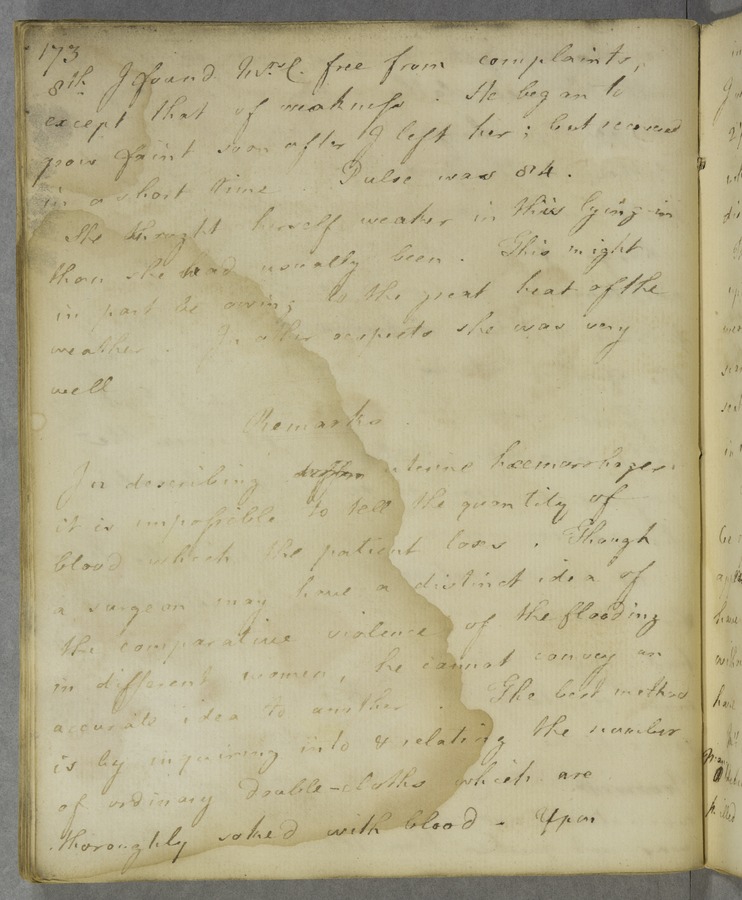 173
8th. I found Mrs. C. free from complaints,
except that of weakness. She began to
grow faint soon after I left her; but recovered
in a short time. Pulse was 84.
She thought herself weaker in this lying-in
than she had usually been. This might
in part be owing to the great heat of the
weather. In other respects she was very
well
Remarks.
In describing uterine hæmorrhages
it is impossible to tell the quantity of
blood which the patient loses. Though
a surgeon may have a distinct idea of
the comparative violence of the flooding
in different women, he cannot convey an
accurate idea to another. The best method
is by inquiring into & relating the number
of ordinary double-cloths which are
thoroughly soked with blood. Upon